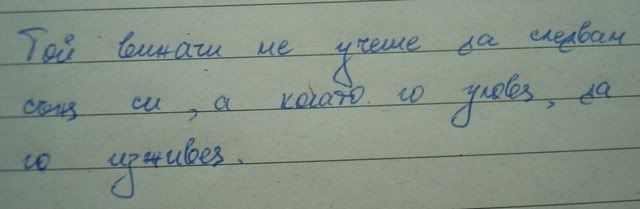 Той винаги ме учеше да следвам
съня си, а когато го уловя, да
го изживея.